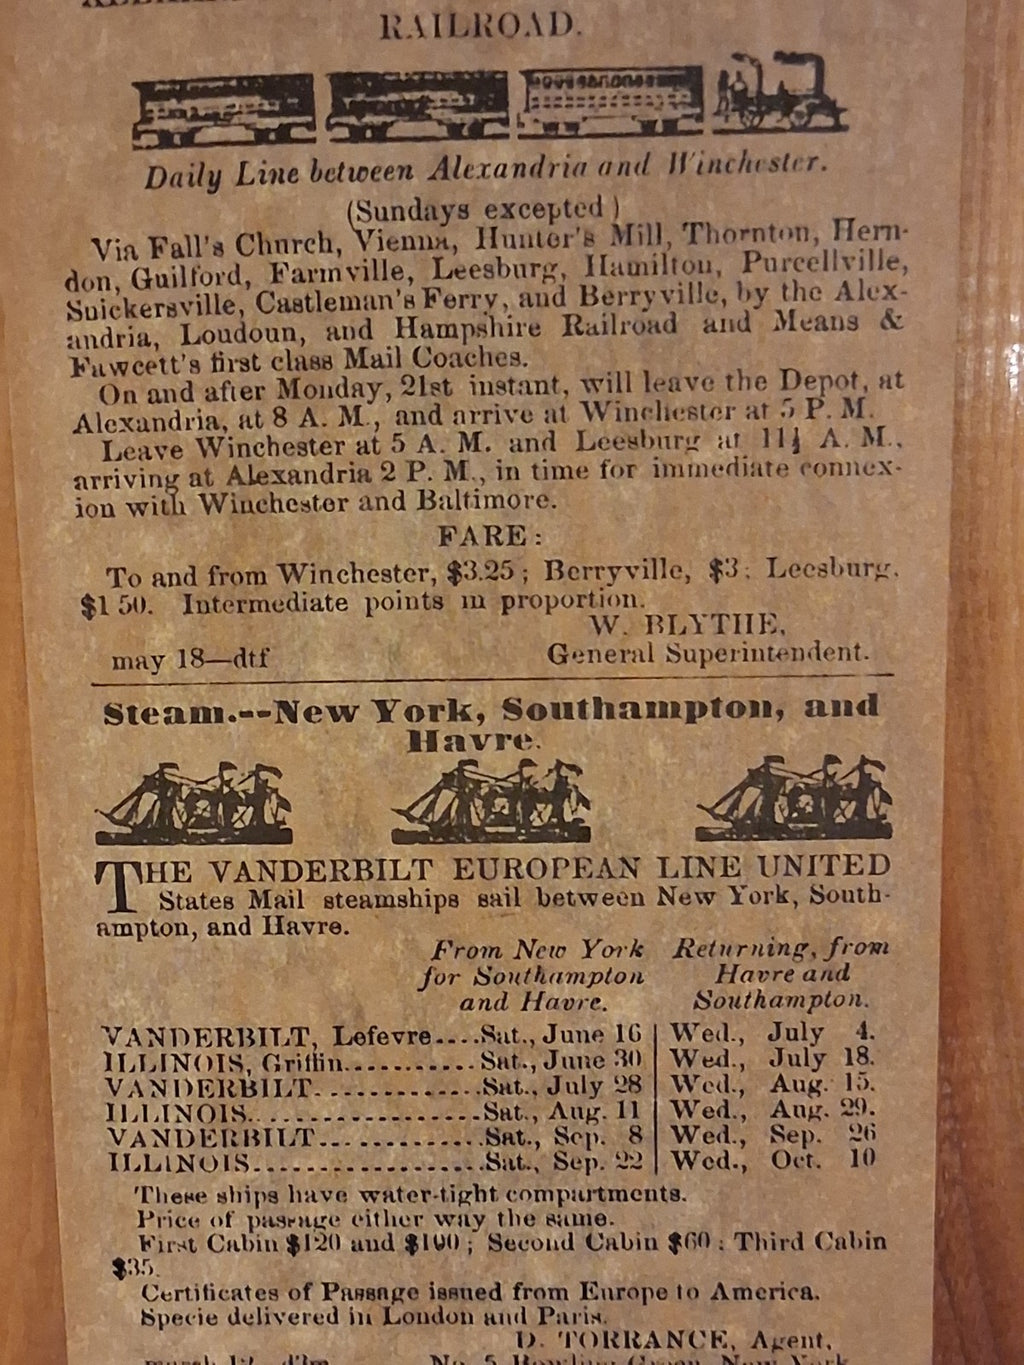 RAILROAD.
Daily Line between Alexandria and Winchester.
(Sundays excepted)
Via Fall's Church, Vienna, Hunter's Mill, Thornton, Hern-
don, Guilford, Farmville, Leesburg, Hamilton, Purcellville,
Snickersville, Castleman's Ferry, and Berryville, by the Alex-
andria, Loudoun, and Hampshire Railroad and Means &
Fawcett's first class Mail Coaches.
On and after Monday, 21st instant, will leave the Depot, at
Alexandria, at 8 A. M., and arrive at Winchester at 5 P. M.
Leave Winchester at 5 A. M. and Leesburg at 11½ A. M.,
arriving at Alexandria 2 P. M., in time for immediate connex-
ion with Winchester and Baltimore.
FARE:
To and from Winchester, $3.25; Berryville, $3; Leesburg,
$1 50. Intermediate points in proportion.
W. BLYTHE,
may 18—dtf General Superintendent.
Steam.--New York, Southampton, and
Havre.
THE VANDERBILT EUROPEAN LINE UNITED
States Mail steamships sail between New York, South-
ampton, and Havre.
From New York Returning, from
for Southampton Havre and
and Havre. Southampton.
VANDERBILT, Lefevre....Sat., June 16 | Wed., July 4.
ILLINOIS, Griffin...........Sat., June 30 | Wed., July 18.
VANDERBILT.............Sat., July 28 | Wed., Aug. 15.
ILLINOIS..................Sat., Aug. 11 | Wed., Aug. 29.
VANDERBILT.............Sat., Sep. 8 | Wed., Sep. 26
ILLINOIS..................Sat., Sep. 22 | Wed., Oct. 10
These ships have water-tight compartments.
Price of passage either way the same.
First Cabin $120 and $100; Second Cabin $60; Third Cabin
$35.
Certificates of Passage issued from Europe to America.
Specie delivered in London and Paris.
D. TORRANCE, Agent,
No. 5 Bowling Green, New York